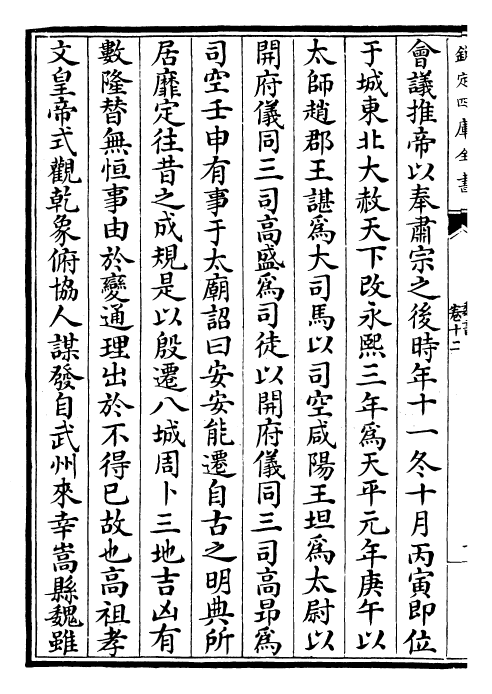 欽定四庫全書
魏書
卷十二
會議推帝以奉肅宗之後時年十一冬十月丙寅即位
于城東北大赦天下改永熙三年為天平元年庚午以
太師趙郡王諶為大司馬以司空咸陽王坦為太尉以
開府儀同三司高盛為司徒以開府儀同三司高昂為
司空壬申有事于太廟詔曰安安能遷自古之明典所
居靡定往昔之成規是以殷遷八城周卜三地吉凶有
數隆替無恒事由於變通理出於不得已故也高祖孝
文皇帝式觀乾象俯協人謀發自武州來幸嵩縣魏雖